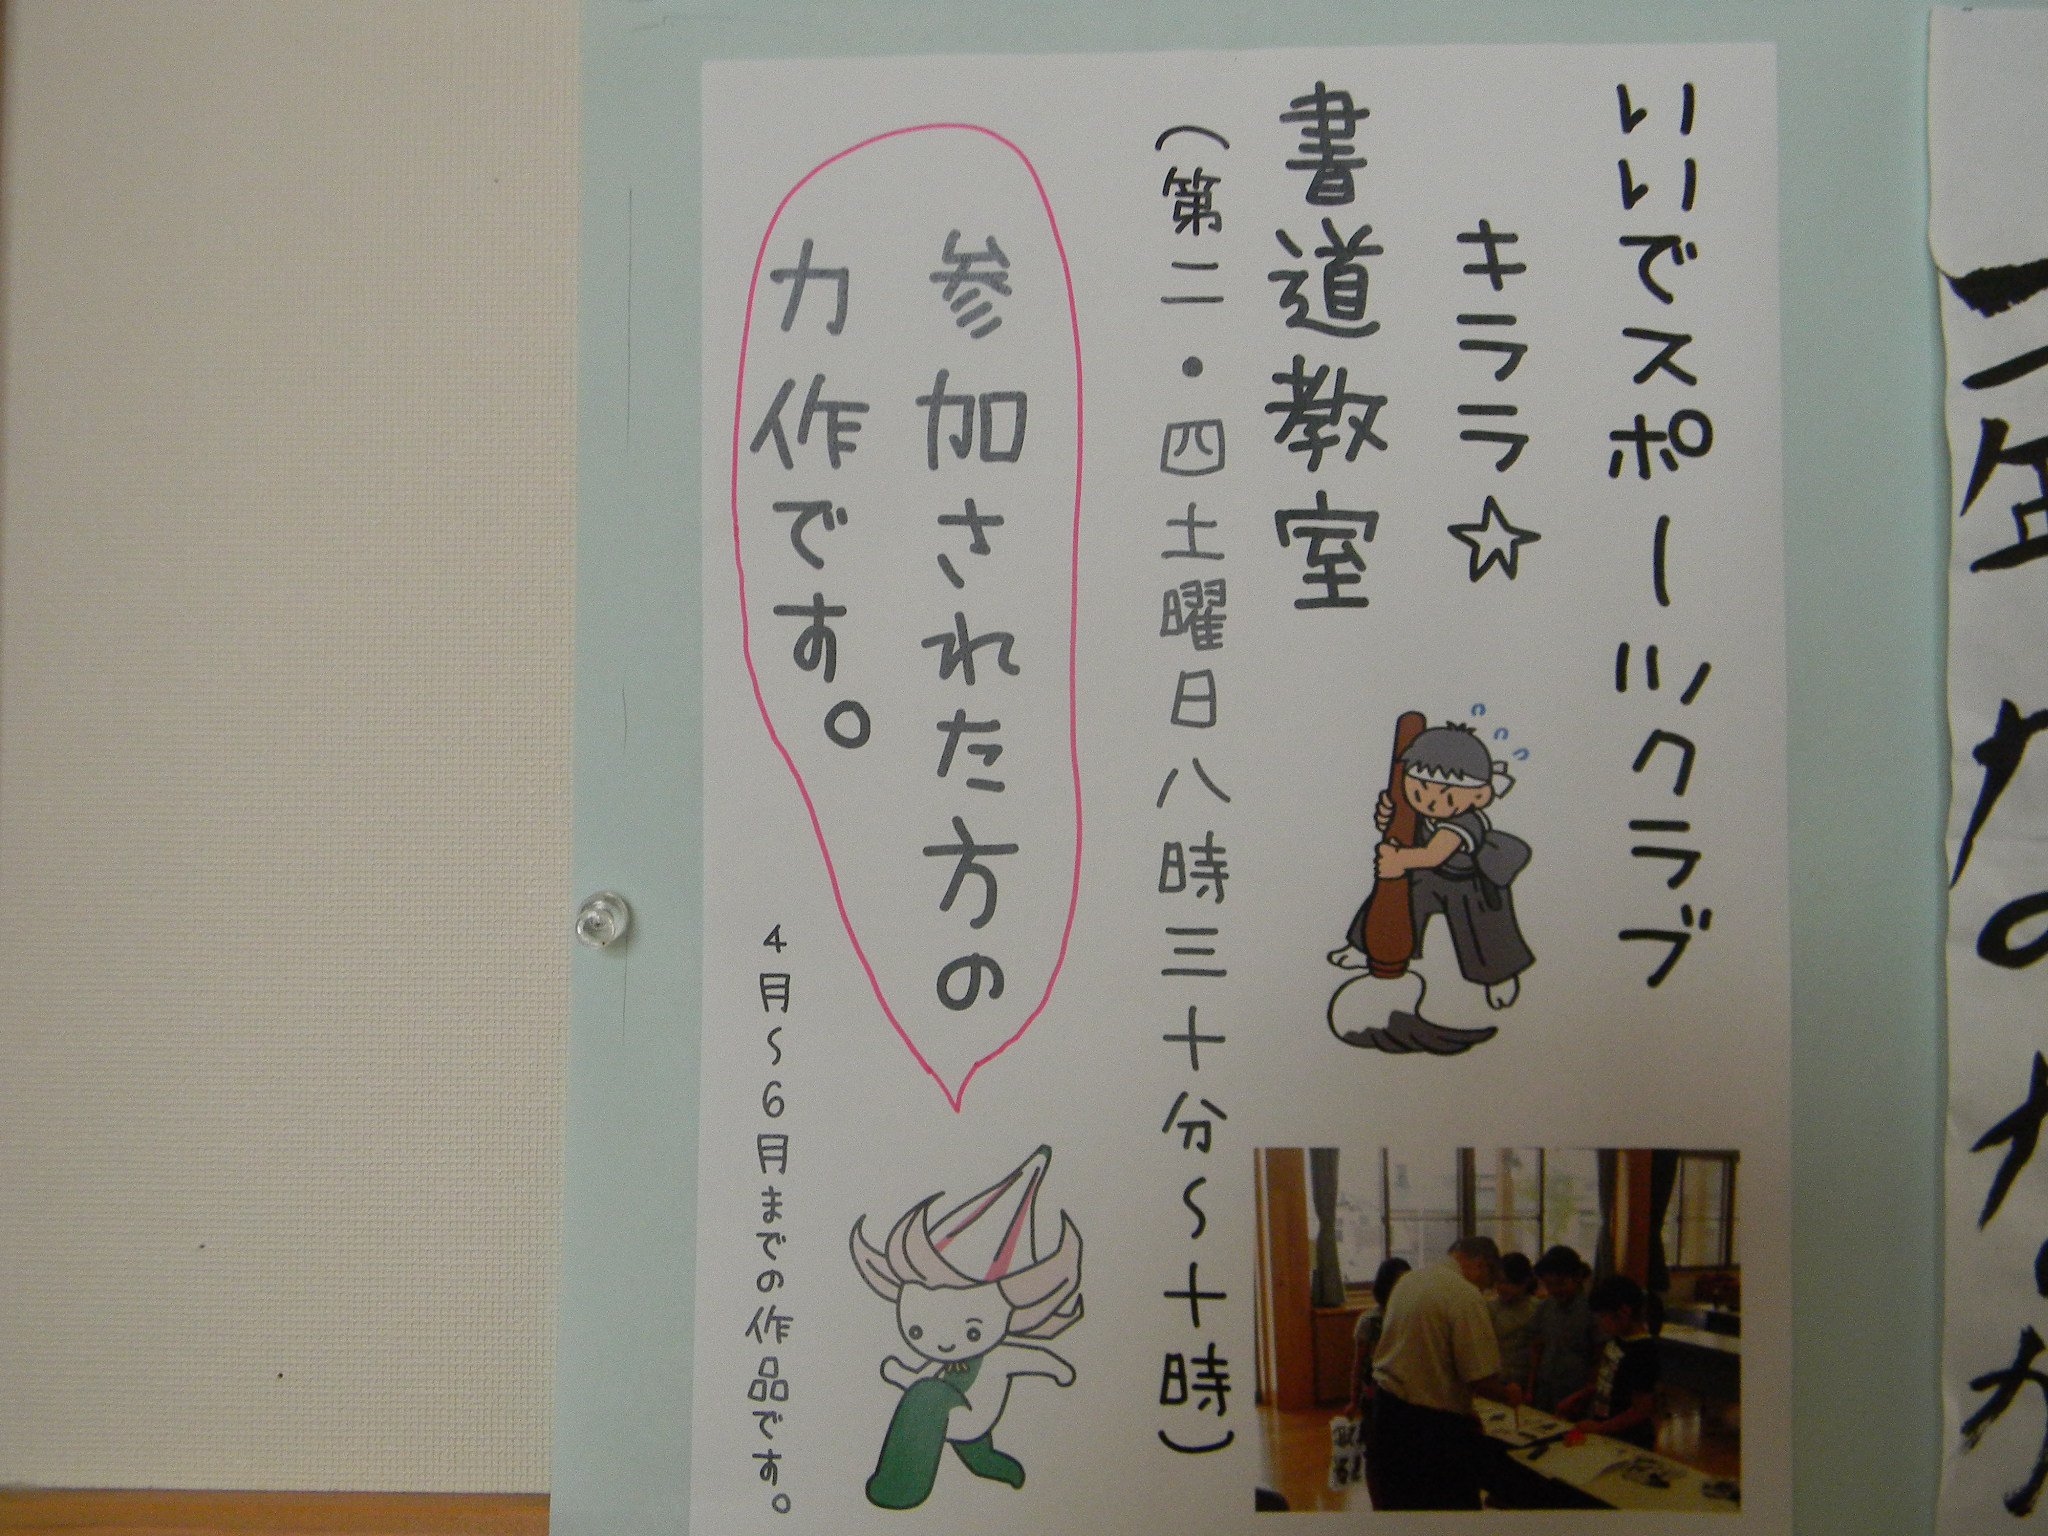 いいでスポーツクラブ
キララ☆
書道教室
(第二・四土曜日八時三十分～十時)
参加された方の
力作です。
4月～6月までの作品です。